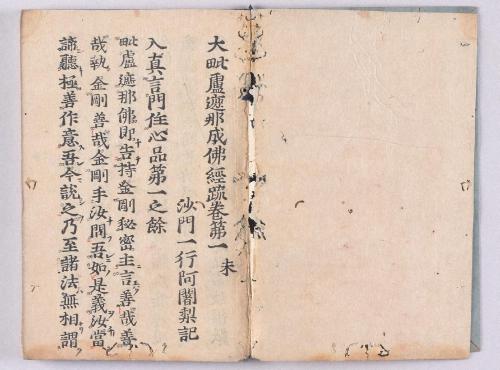 大毗盧遮那成佛經䟽卷第一 末
沙門一行阿闍梨記
入真言門住心品第一之餘
毗盧遮那佛即告持金剛秘密主言善哉善
哉執金剛善哉金剛手汝問吾如是義汝當
諦聽極善作意吾今說之乃至諸法無相謂